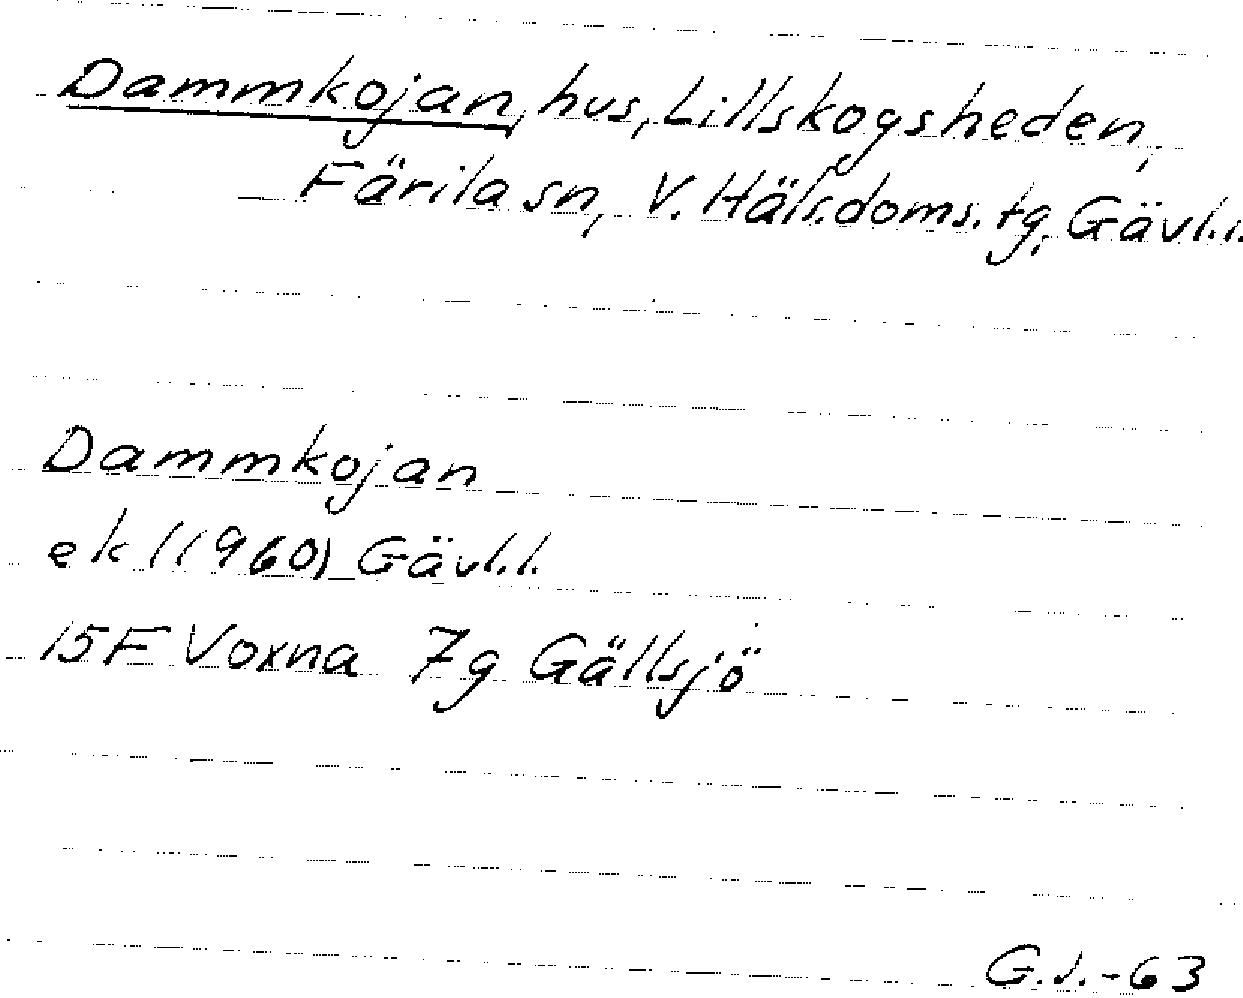 Dammkojan, hus, Lillskogsheden,
Färila sn, V. Häls.doms. tg, Gävl.l.
Dammkojan
ek (1960) Gävl.l.
15F Voxna 7g Gällsjö
G.J.-63